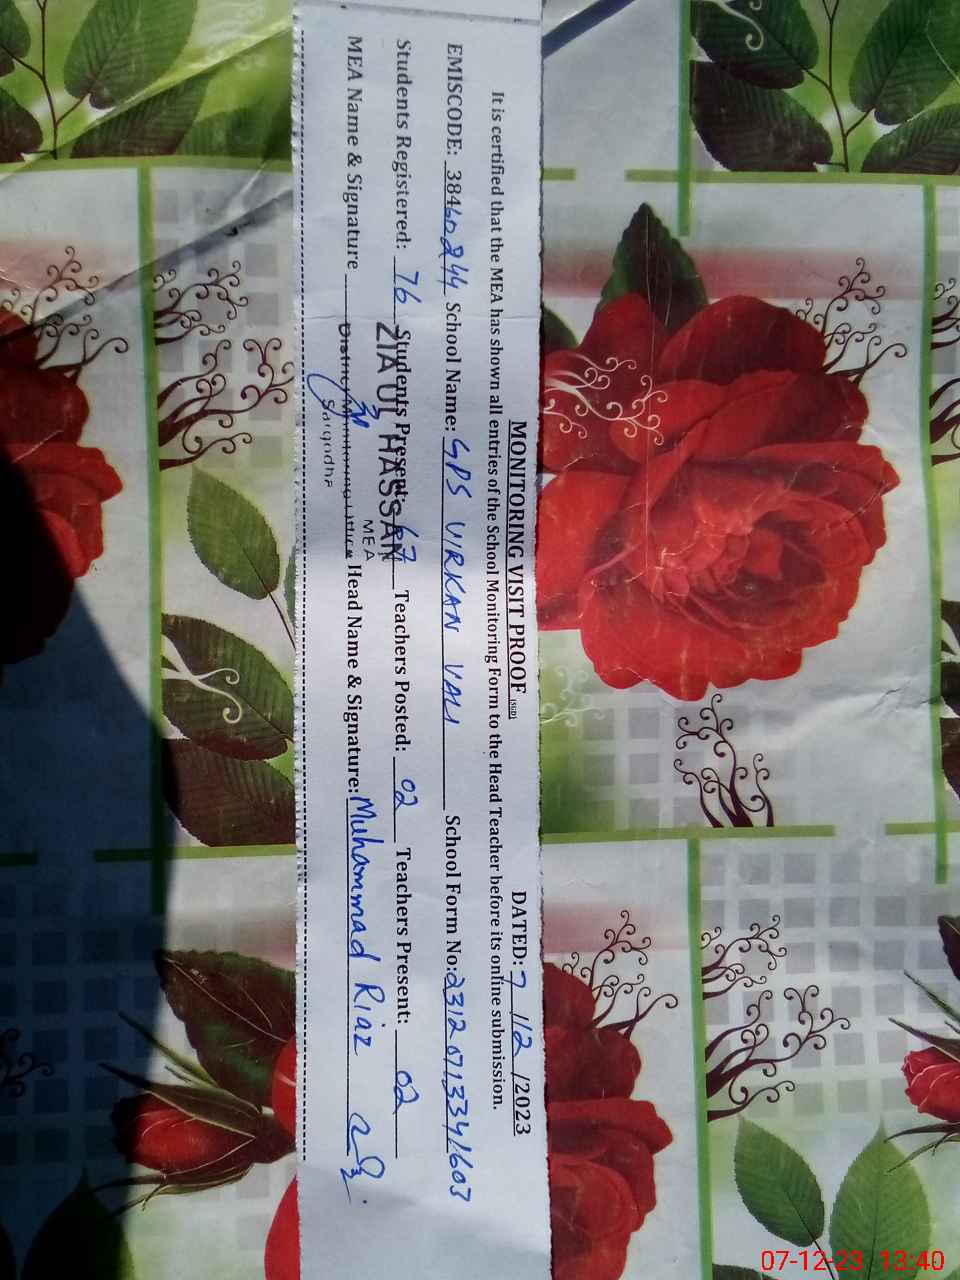 MONITORING VISIT PROOF (SGD) DATED: 7 /12 /2023
It is certified that the MEA has shown all entries of the School Monitoring Form to the Head Teacher before its online submission.
EMISCODE: 38460244 School Name: GPS VIRKAN VALI School Form No:
Students Registered: 76 Students Present: 67 Teachers Posted: 02 Teachers Present: 02
ZIA UL HASSAN
MEA
MEA Name & Signature Head Name & Signature: Muhammad Riaz
District Monitoring Officer
Sargodha
07-12-23 13:40